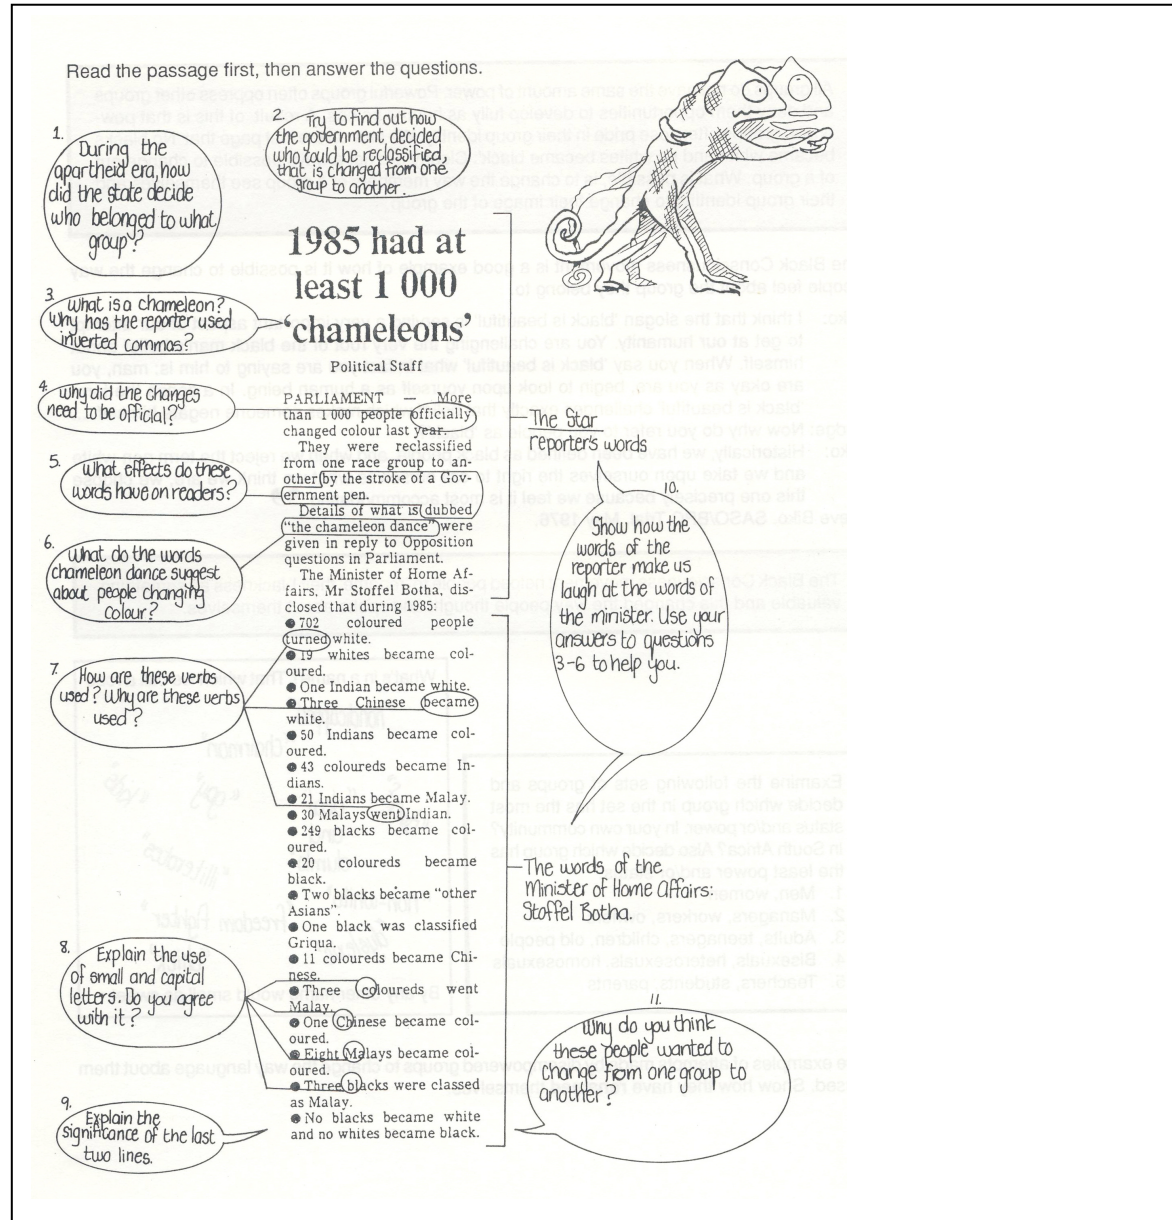 Read the passage first, then answer the questions.
1.
During the
apartheid era, how
did the state decide
who belonged to what
group?
2.
Try to find out how
the government decided
who could be reclassified,
that is changed from one
group to another.
3.
What is a chameleon?
Why has the reporter used
inverted commas?
4.
Why did the changes
need to be official?
5.
What effects do these
words have on readers?
6.
What do the words
chameleon dance suggest
about people changing
Colour?
7.
How are these verbs
used? Why are these verbs
used?
8.
Explain the use
of small and capital
letters. Do you agree
with it?
9.
Explain the
significance of the last
two lines.
1985 had at
least 1 000
‘chameleons’
Political Staff
PARLIAMENT — More
than 1 000 people officially
changed colour last year.
They were reclassified
from one race group to an-
other by the stroke of a Gov-
ernment pen.
Details of what is dubbed
"the chameleon dance" were
given in reply to Opposition
questions in Parliament.
The Minister of Home Af-
fairs, Mr Stoffel Botha, dis-
closed that during 1985:
● 702 coloured people
turned white.
● 19 whites became col-
oured.
● One Indian became white.
● Three Chinese became
white.
● 50 Indians became col-
oured.
● 43 coloureds became In-
dians.
● 21 Indians became Malay.
● 30 Malays went Indian.
● 249 blacks became col-
oured.
● 20 coloureds became
black.
● Two blacks became "other
Asians".
● One black was classified
Griqua.
● 11 coloureds became Chi-
nese.
● Three coloureds went
Malay.
● One Chinese became col-
oured.
● Eight Malays became col-
oured.
● Three blacks were classed
as Malay.
● No blacks became white
and no whites became black.
The Star
reporter's words
10.
Show how the
words of the
reporter make us
laugh at the words of
the minister. Use your
answers to questions
3-6 to help you.
The words of the
Minister of Home Affairs:
Stoffel Botha.
11.
Why do you think
these people wanted to
change from one group to
another?